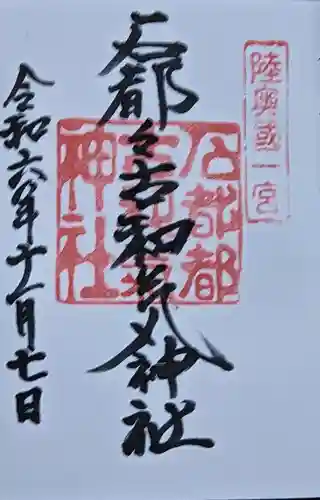 陸奥國一宮
石都々古和氣神社
石都都
古和氣
神社
令和六年十一月七日